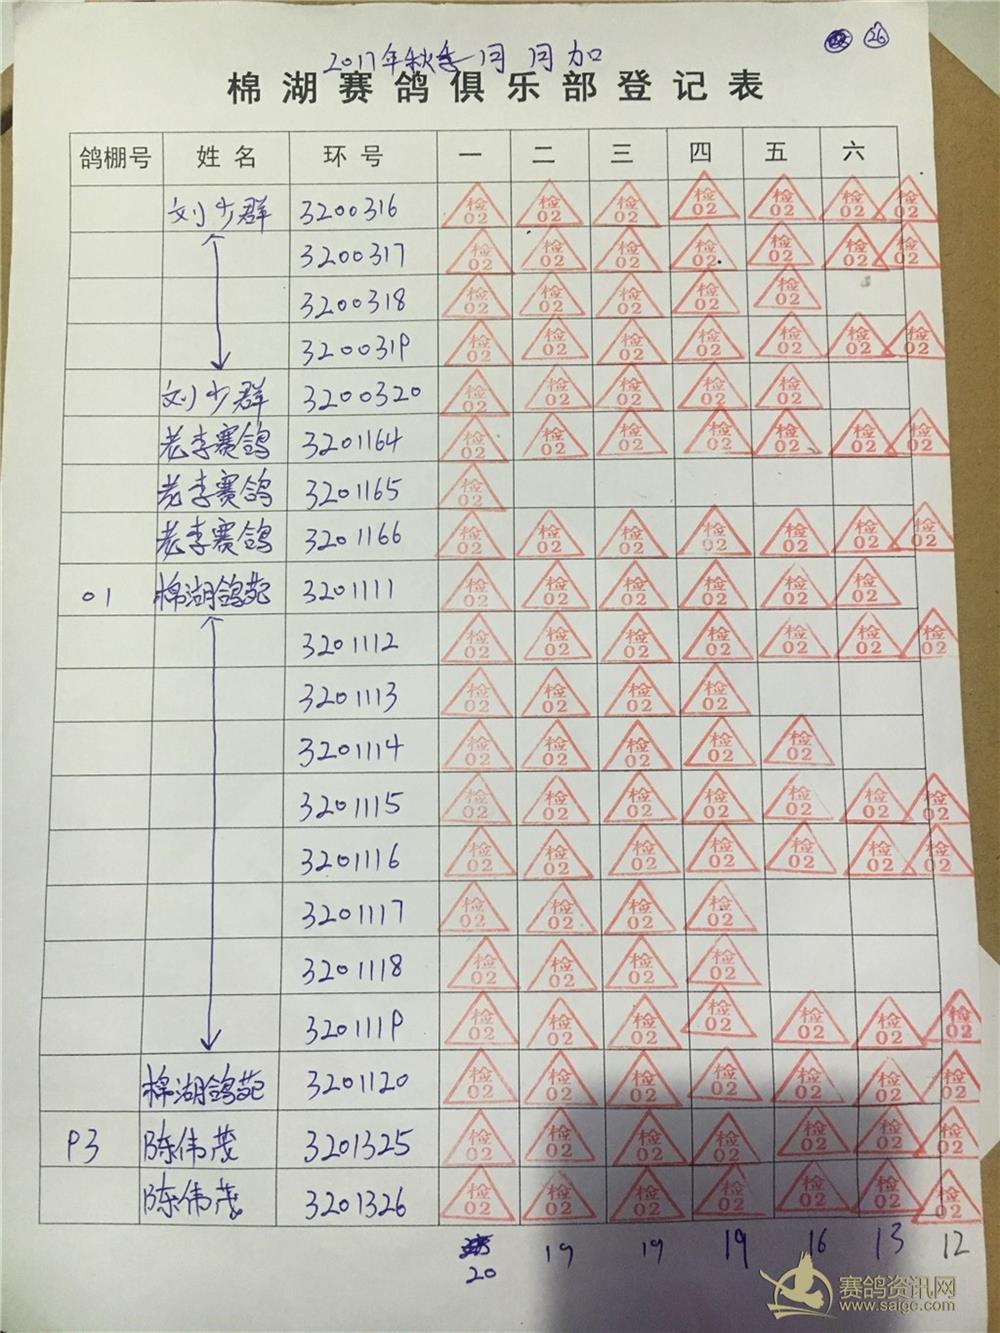 26
2017年秋季
棉湖赛鸽俱乐部登记表
鸽棚号 姓名 环号 一 二 三 四 五 六
刘少群 3200316 检02 检02 检02 检02 检02 检02 检02
3200317 检02 检02 检02 检02 检02 检02 检02
3200318 检02 检02 检02 检02 检02
3200319 检02 检02 检02 检02 检02 检02 检02
刘少群 3200320 检02 检02 检02 检02 检02
老李赛鸽 3201164 检02 检02 检02 检02 检02 检02 检02
老李赛鸽 3201165 检02
老李赛鸽 3201166 检02 检02 检02 检02 检02 检02 检02
01 棉湖鸽苑 3201111 检02 检02 检02 检02 检02 检02
3201112 检02 检02 检02 检02 检02 检02 检02
3201113 检02 检02 检02 检02
3201114 检02 检02 检02 检02 检02
3201115 检02 检02 检02 检02 检02 检02 检02
3201116 检02 检02 检02 检02 检02 检02 检02
3201117 检02 检02 检02 检02
3201118 检02 检02 检02 检02
3201119 检02 检02 检02 检02 检02 检02 检02
棉湖鸽苑 3201120 检02 检02 检02 检02 检02 检02 检02
93 陈伟茂 3201325 检02 检02 检02 检02 检02 检02 检02
陈伟茂 3201326 检02 检02 检02 检02 检02 检02 检02
20 19 19 19 16 13 12
赛鸽资讯网
www.saige.com